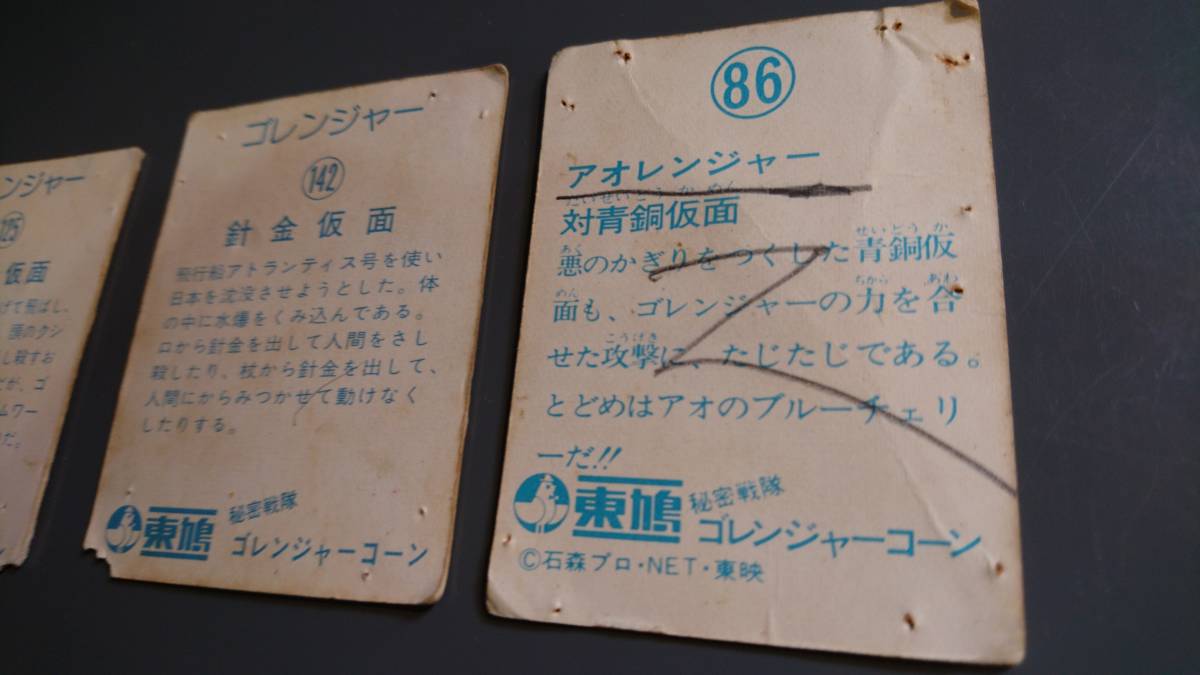 ンジャー
125
仮面
げて飛ばし、
頭のクシ
し殺すお
だが、ゴ
ムワー
だ。
ン
ゴレンジャー
142
針金仮面
飛行船アトランティス号を使い
日本を沈没させようとした。体
の中に水爆をくみ込んである。
口から針金を出して人間をさし
殺したり、杖から針金を出して、
人間にからみつかせて動けなく
したりする。
東鳩
秘密戦隊
ゴレンジャーコーン
86
アオレンジャー
たいせいどうかめん
対青銅仮面
あく せいどうか
悪のかぎりをつくした青銅仮
めん ちから あわ
面も、ゴレンジャーの力を合
こうげき
せた攻撃に、たじたじである。
とどめはアオのブルーチェリ
ーだ!!
東鳩
秘密戦隊
ゴレンジャーコーン
©石森プロ・NET・東映